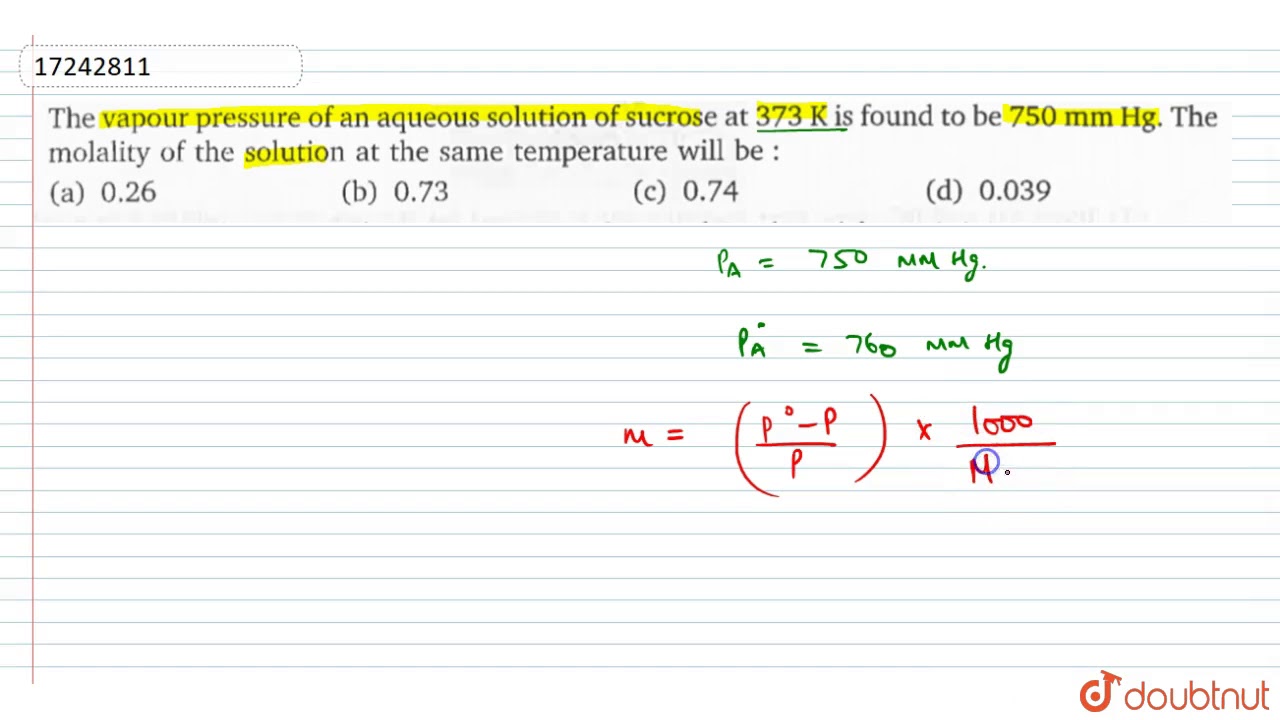 17242811
The vapour pressure of an aqueous solution of sucrose at 373 K is found to be 750 mm Hg. The
molality of the solution at the same temperature will be :
(a) 0.26 (b) 0.73 (c) 0.74 (d) 0.039
P_A = 750 mm Hg.
P_A° = 760 mm Hg
m = (P° - P / P) × 1000 / M
doubtnut